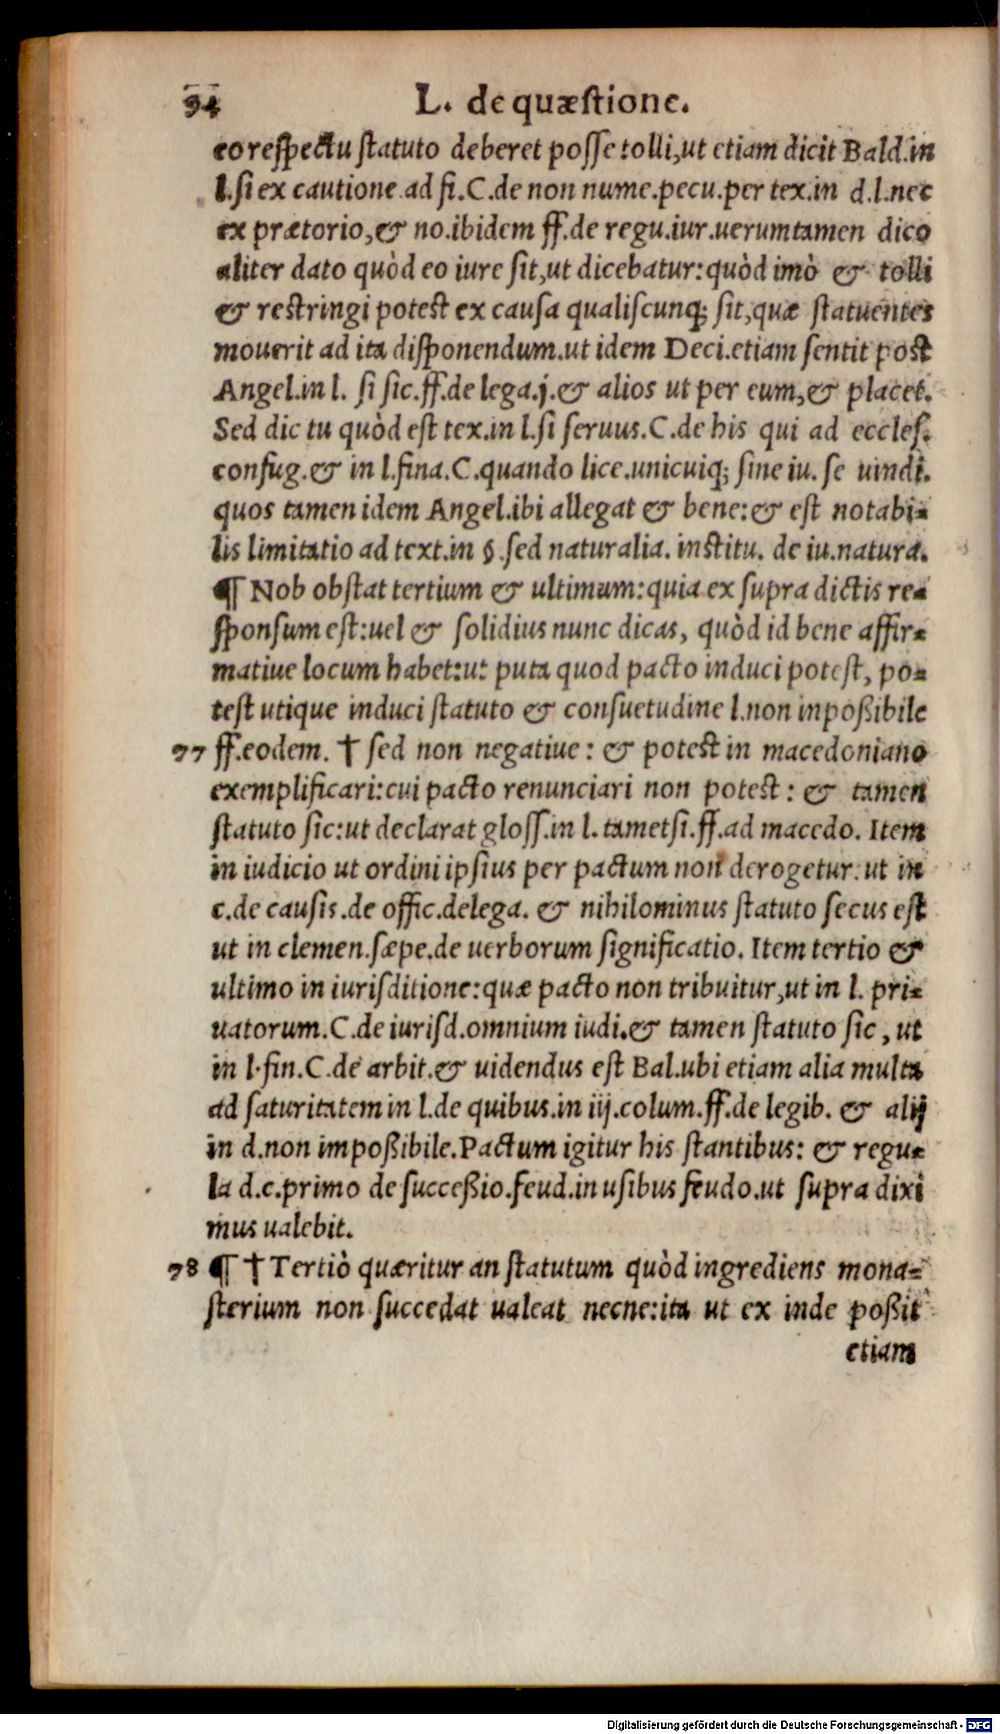 94 L. de quæstione.
eo respectu statuto deberet posse tolli,ut etiam dicit Bald.in
l.si ex cautione.ad fi.C.de non nume.pecu.per tex.in d.l.nec
ex prætorio,& no.ibidem ff.de regu.iur.uerumtamen dico
aliter dato quòd eo iure sit,ut dicebatur:quòd imò & tolli
& restringi potest ex causa qualiscunq; sit,quæ statuentes
mouerit ad ita disponendum.ut idem Deci.etiam sentit post
Angel.in l. si sic.ff.de lega.j.& alios ut per eum,& placet.
Sed dic tu quòd est tex.in l.si seruus.C.de his qui ad eccles.
confug.& in l.fina.C.quando lice.unicuiq; sine iu. se uindi.
quos tamen idem Angel.ibi allegat & bene:& est notabi-
lis limitatio ad text.in §.sed naturalia. institu. de iu.natura.
¶ Nob obstat tertium & ultimum:quia ex supra dictis re-
sponsum est:uel & solidius nunc dicas, quòd id bene affir-
matiue locum habet:ut puta quod pacto induci potest, po-
test utique induci statuto & consuetudine l.non inpoßibile
77 ff.eodem. † sed non negatiue: & potest in macedoniano
exemplificari:cui pacto renunciari non potest: & tamen
statuto sic:ut declarat gloss.in l.tametsi.ff.ad macedo. Item
in iudicio ut ordini ipsius per pactum non derogetur.ut in
c.de causis.de offic.delega. & nihilominus statuto secus est
ut in clemen.sæpe.de uerborum significatio. Item tertio &
ultimo in iurisditione:quæ pacto non tribuitur,ut in l. pri-
uatorum.C.de iurisd.omnium iudi.& tamen statuto sic, ut
in l.fin.C.de arbit.& uidendus est Bal.ubi etiam alia multa
ad saturitatem in l.de quibus.in iij.colum.ff.de legib. & alij
in d.non impoßibile.Pactum igitur his stantibus: & regu-
la d.c.primo de succeßio.feud.in usibus feudo.ut supra dixi
mus ualebit.
78 ¶ † Tertiò quæritur an statutum quòd ingrediens mona-
sterium non succedat ualeat necne:ita ut ex inde poßit
etiam
Digitalisierung gefördert durch die Deutsche Forschungsgemeinschaft - DFG